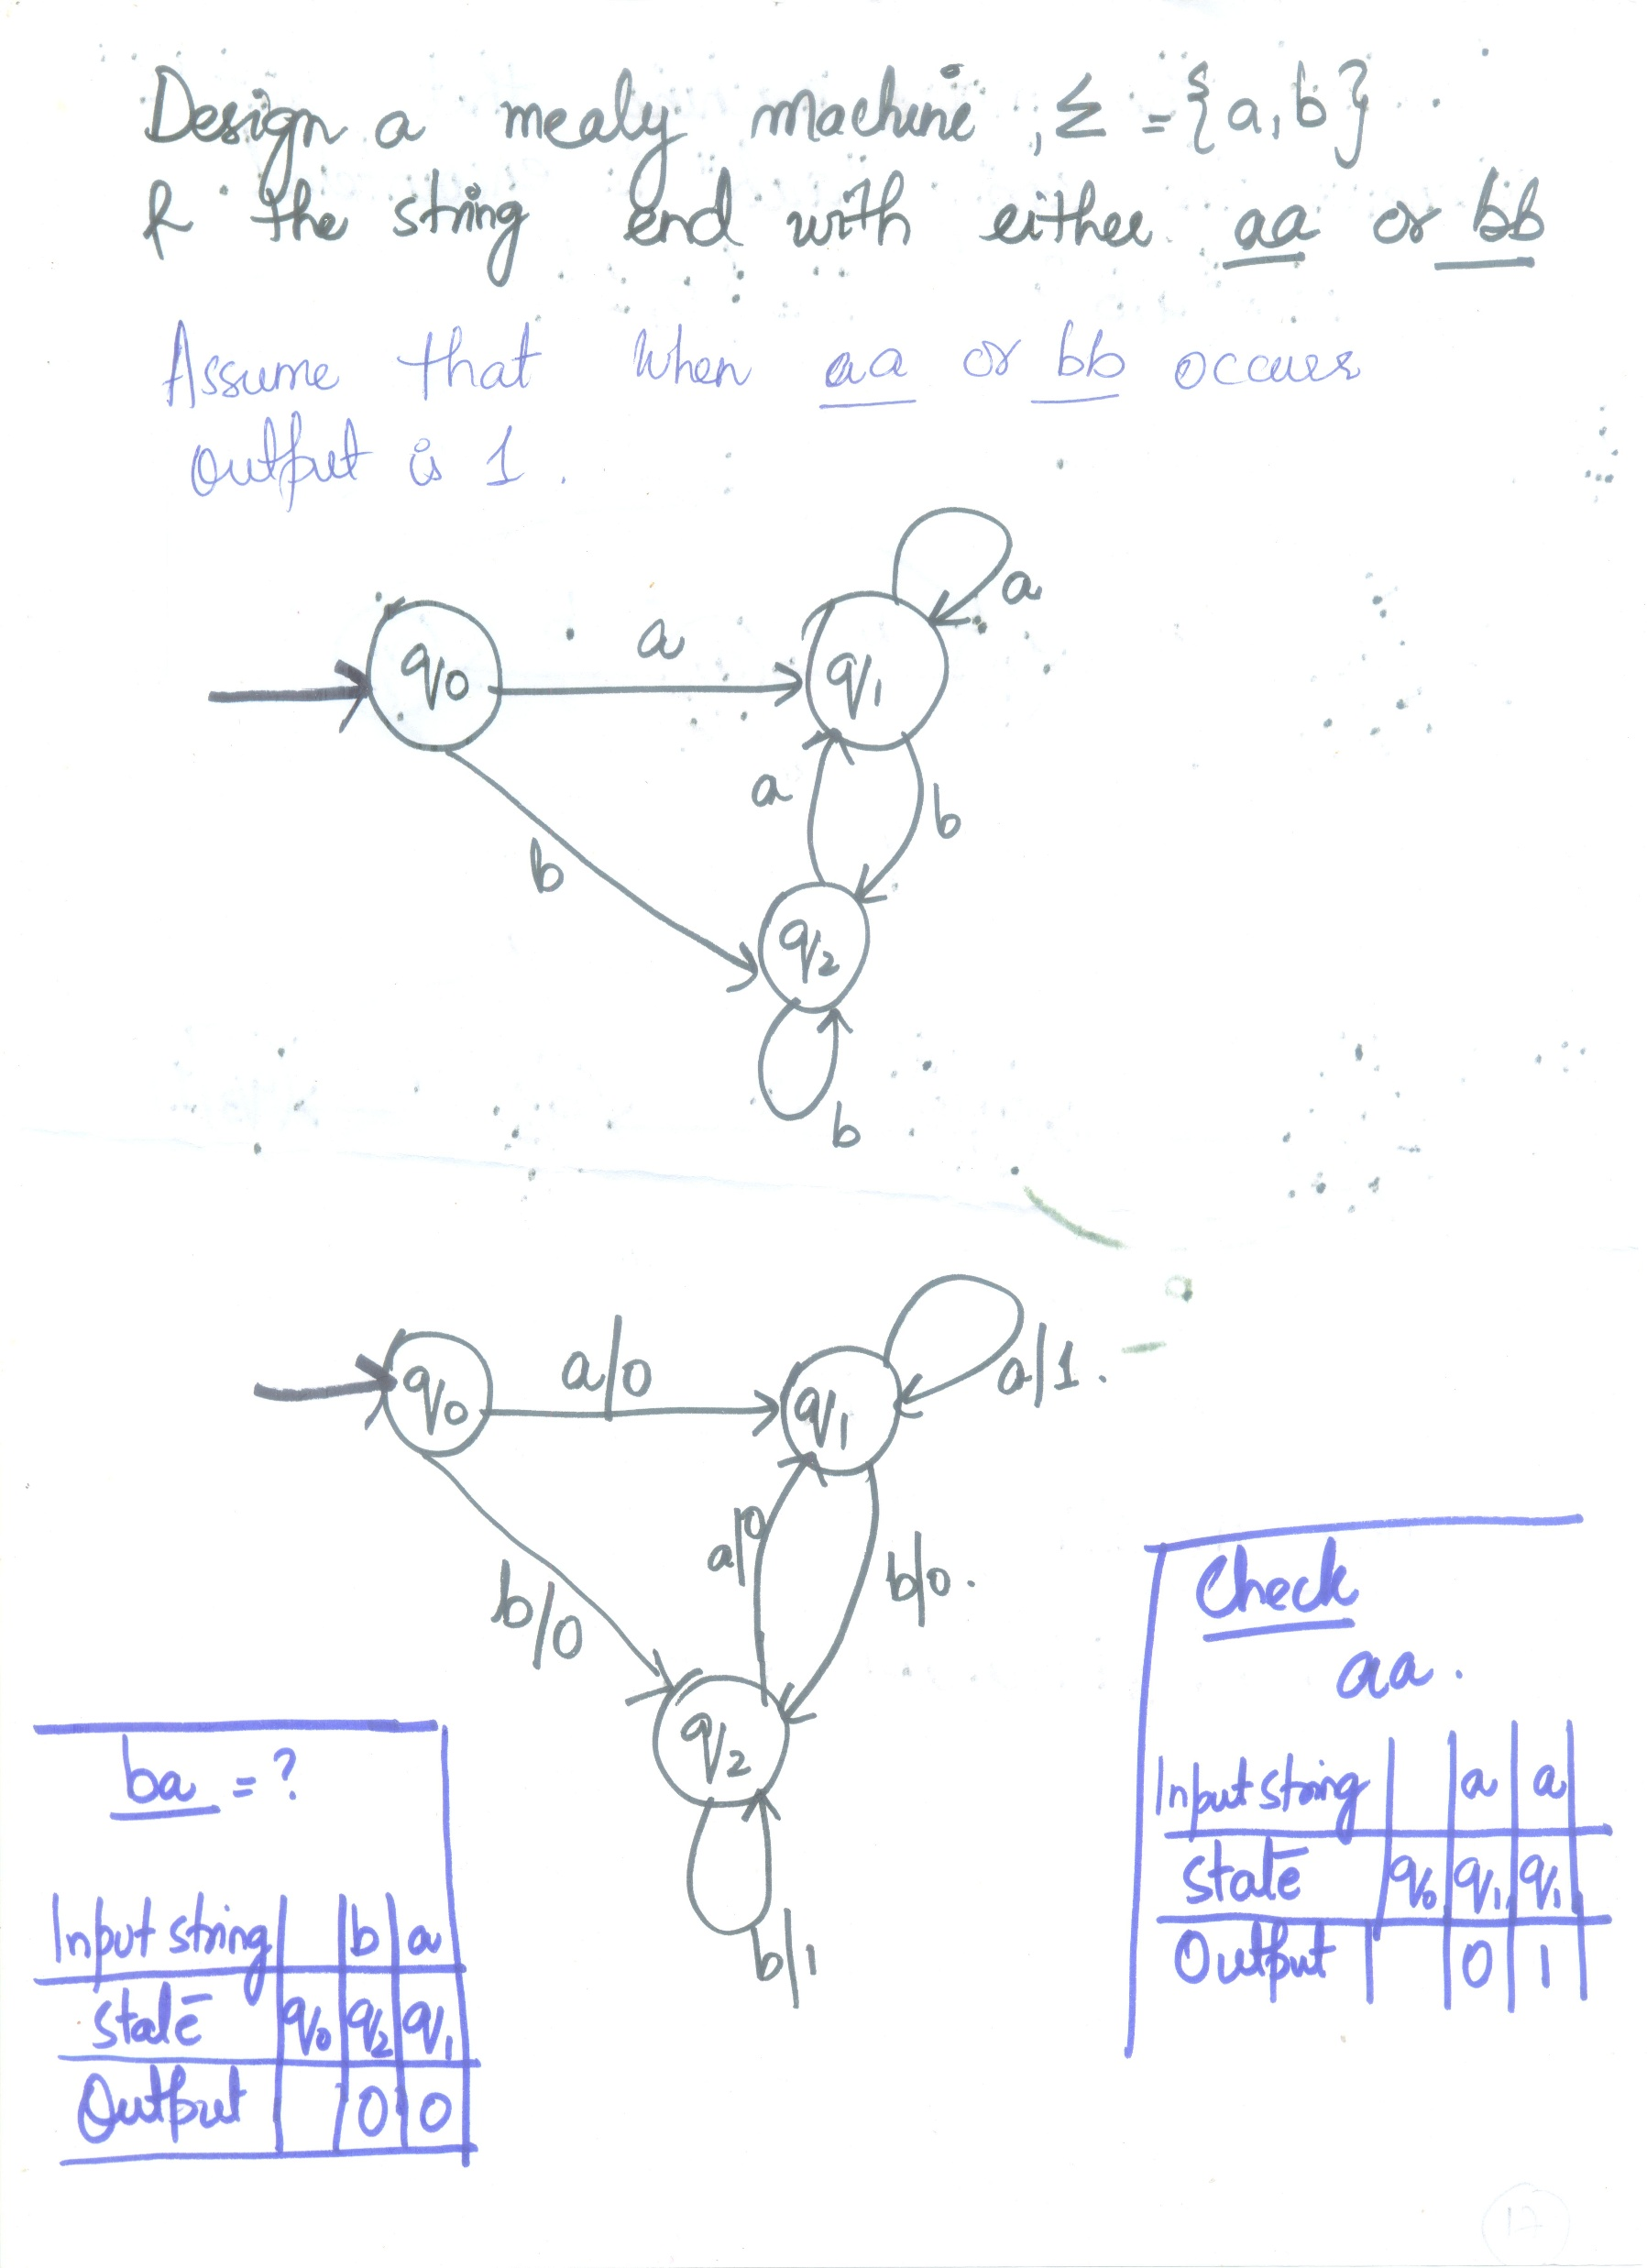 Design a mealy machine, Σ = {a,b}
& the string end with either aa or bb
Assume that when aa or bb occurs
output is 1.
a
q0
a
q1
a
b
b
q2
b
a/0
a/1.
q0
q1
a/0
b/0.
b/0
q2
b/1
Check
aa.
Input string a a
state q0 q1 q1
Output 0 1
ba = ?
Input string b a
state q0 q2 q1
Output 0 0
17